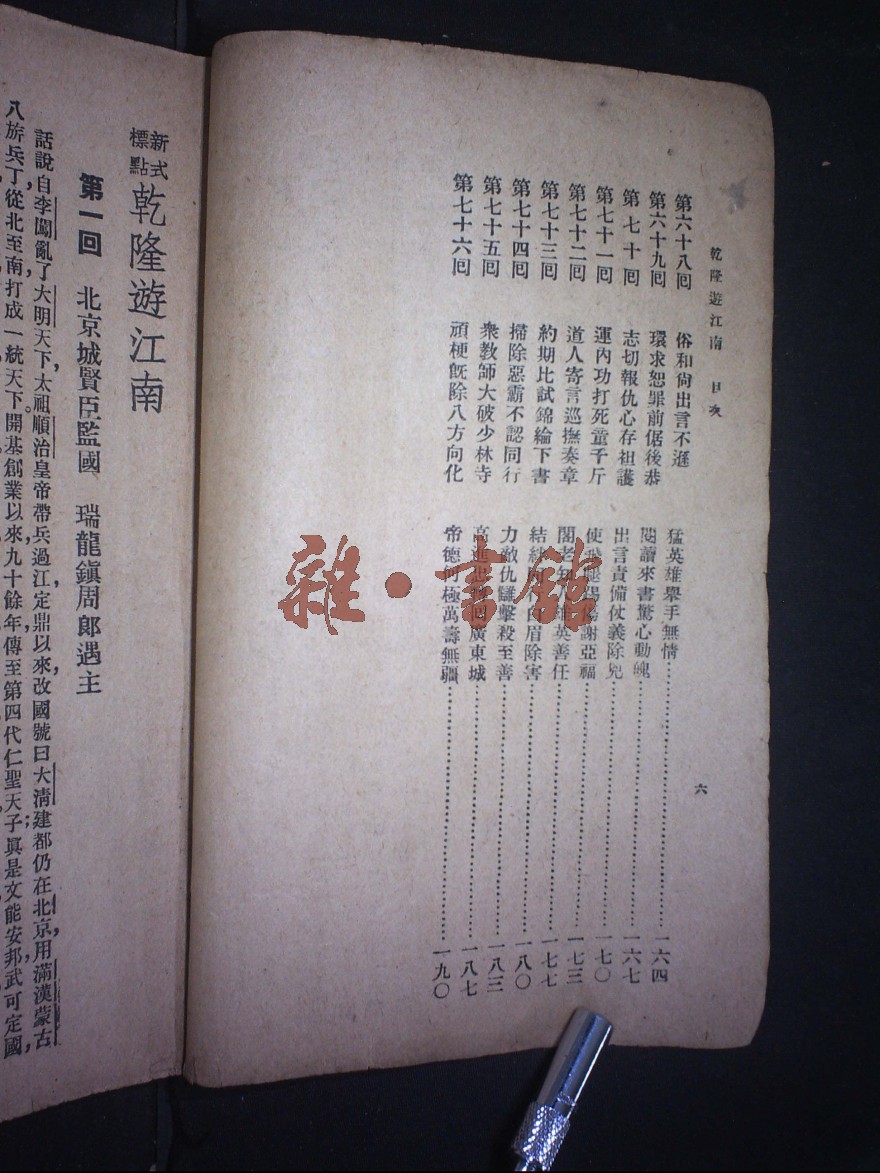 乾隆遊江南 目次 六
第六十八囘 俗和尙出言不遜 猛英雄舉手無情 一六四
第六十九囘 環求恕罪前倨後恭 閱讀來書驚心動魄 一六七
第七十囘 志切報仇心存祖護 出言責備仗義除兇 一七〇
第七十一囘 運內功打死童千斤 使飛腿踢傷謝亞福 一七三
第七十二囘 道人寄言巡撫奏章 閣老知人英善任 一七七
第七十三囘 約期比試錦綸下書 結白眉除害 一八〇
第七十四囘 掃除惡霸不認同行 力敵仇讎擊殺至善 一八三
第七十五囘 衆敎師大破少林寺 高進忠囘廣東城 一八七
第七十六囘 頑梗旣除八方向化 帝德何極萬壽無疆 一九〇
雜·書館
新式標點 乾隆遊江南
第一回 北京城賢臣監國 瑞龍鎭周郞遇主
話說自李闖亂了大明天下,太祖順治皇帝帶兵過江,定鼎以來,改國號曰大淸;建都仍在北京,用滿漢蒙古
八旂兵丁,從北至南,打成一統天下。開基創業以來,九十餘年,傳至第四代仁聖天子,眞是文能安邦,武可定國,